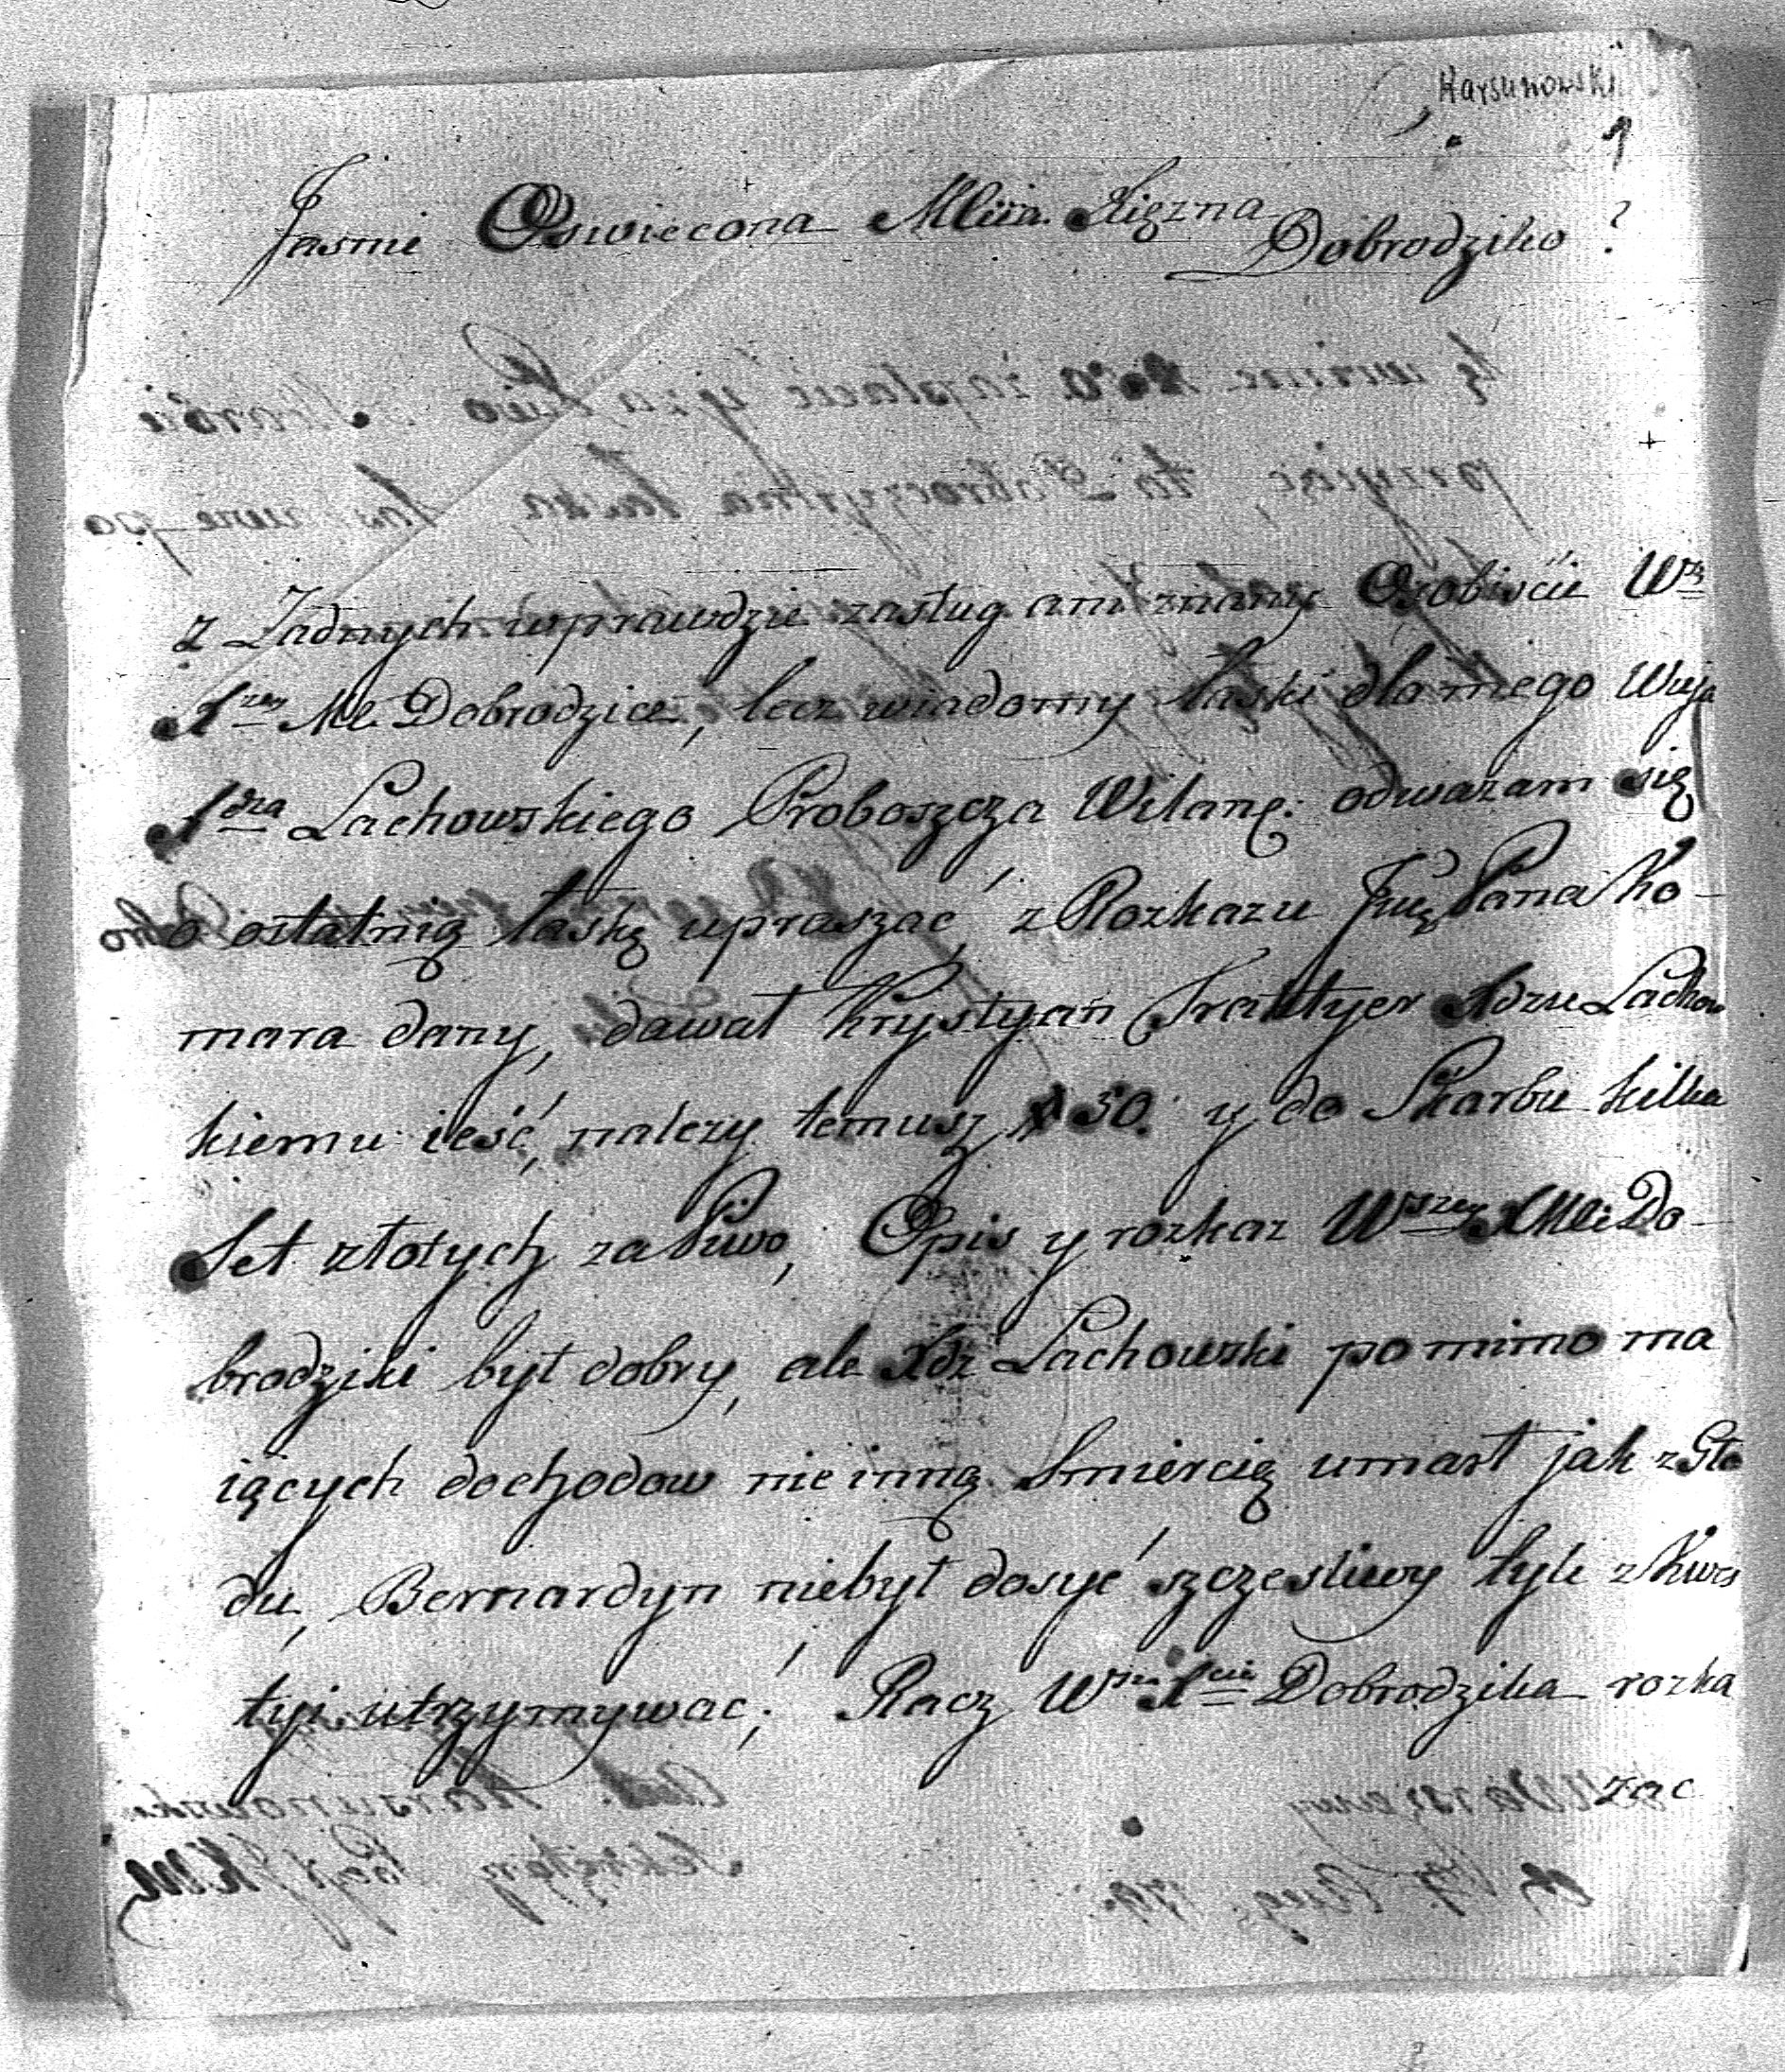 Karsunowski
1
Jasnie Oswiecona Mliia. Xięzna
Dobrodziko
z Żadnych wprawdzie zasług ani znany Osobiscie W
X Mci Dobrodzice, lecz wiadomy łaski dla mego Wuja
Xdza Lachowskiego Proboszcza Wilanę. odwazam się
o ostatnią łaskę upraszac, z Rozkazu Pana Ko-
mara dany, dawał Krystyan Traktyer Xdzu Lachow
kiemu ieść, należy temusz # 50. y do Skarbu kilka
Set złotych za Piwo, Opis y rozkaz Wszey XMci Do-
brodziki był dobry, ale Xdz Lachowski pomimo ma
iących dochodow nie inną Smiercią umarł jak z Gło
du, Bernardyn niebył dosyć szczesliwy tyle z Kwes
tyi utrzymywac; Racz W Xcia Dobrodzika rozka
zac